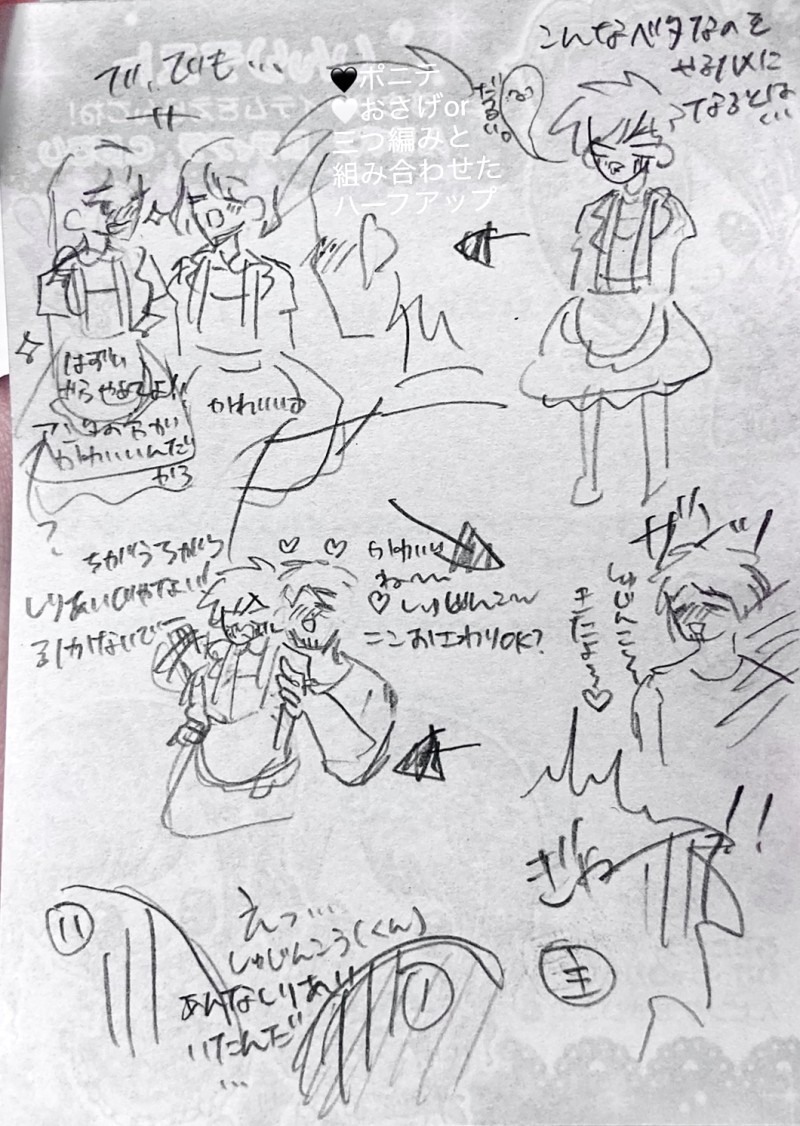 こんなベタなのを
やるハメに
なるとは
…
だるい。
で、でも…
🖤ポニテ
🤍おさげor
三つ編みと
組み合わせた
ハーフアップ
はずい
からやめてよ!!
アンタの方が
かわいいんだ
から
かわいいよ
ザッ!
しゅじんこ〜
きたよ〜♡
!!
ぎゃ
主
かわいい
ね〜
♡しゅじんこ〜
ここおさわりOK?
ちがうちがう
しりあいじゃない!!
引かないで〜
えっ…
しゅじんこう(くん)
あんなしりあい
いたんだ
…